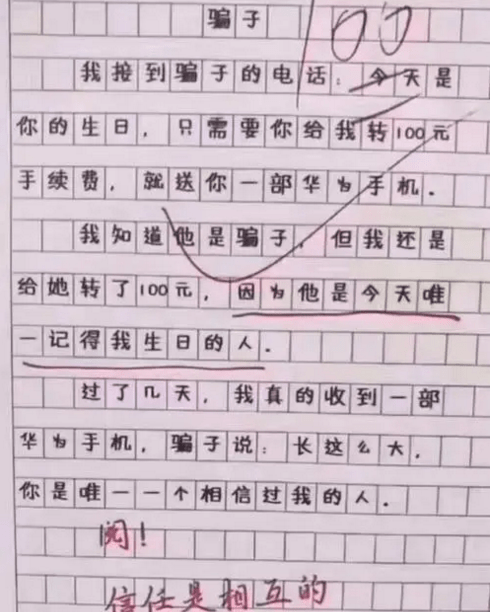 骗子
100
我接到骗子的电话：今天是
你的生日，只需要你给我转100元
手续费，就送你一部华为手机.
我知道他是骗子，但我还是
给她转了100元，因为他是今天唯
一记得我生日的人.
过了几天，我真的收到一部
华为手机，骗子说：长这么大，
你是唯一一个相信过我的人.
阅！
信任是相互的